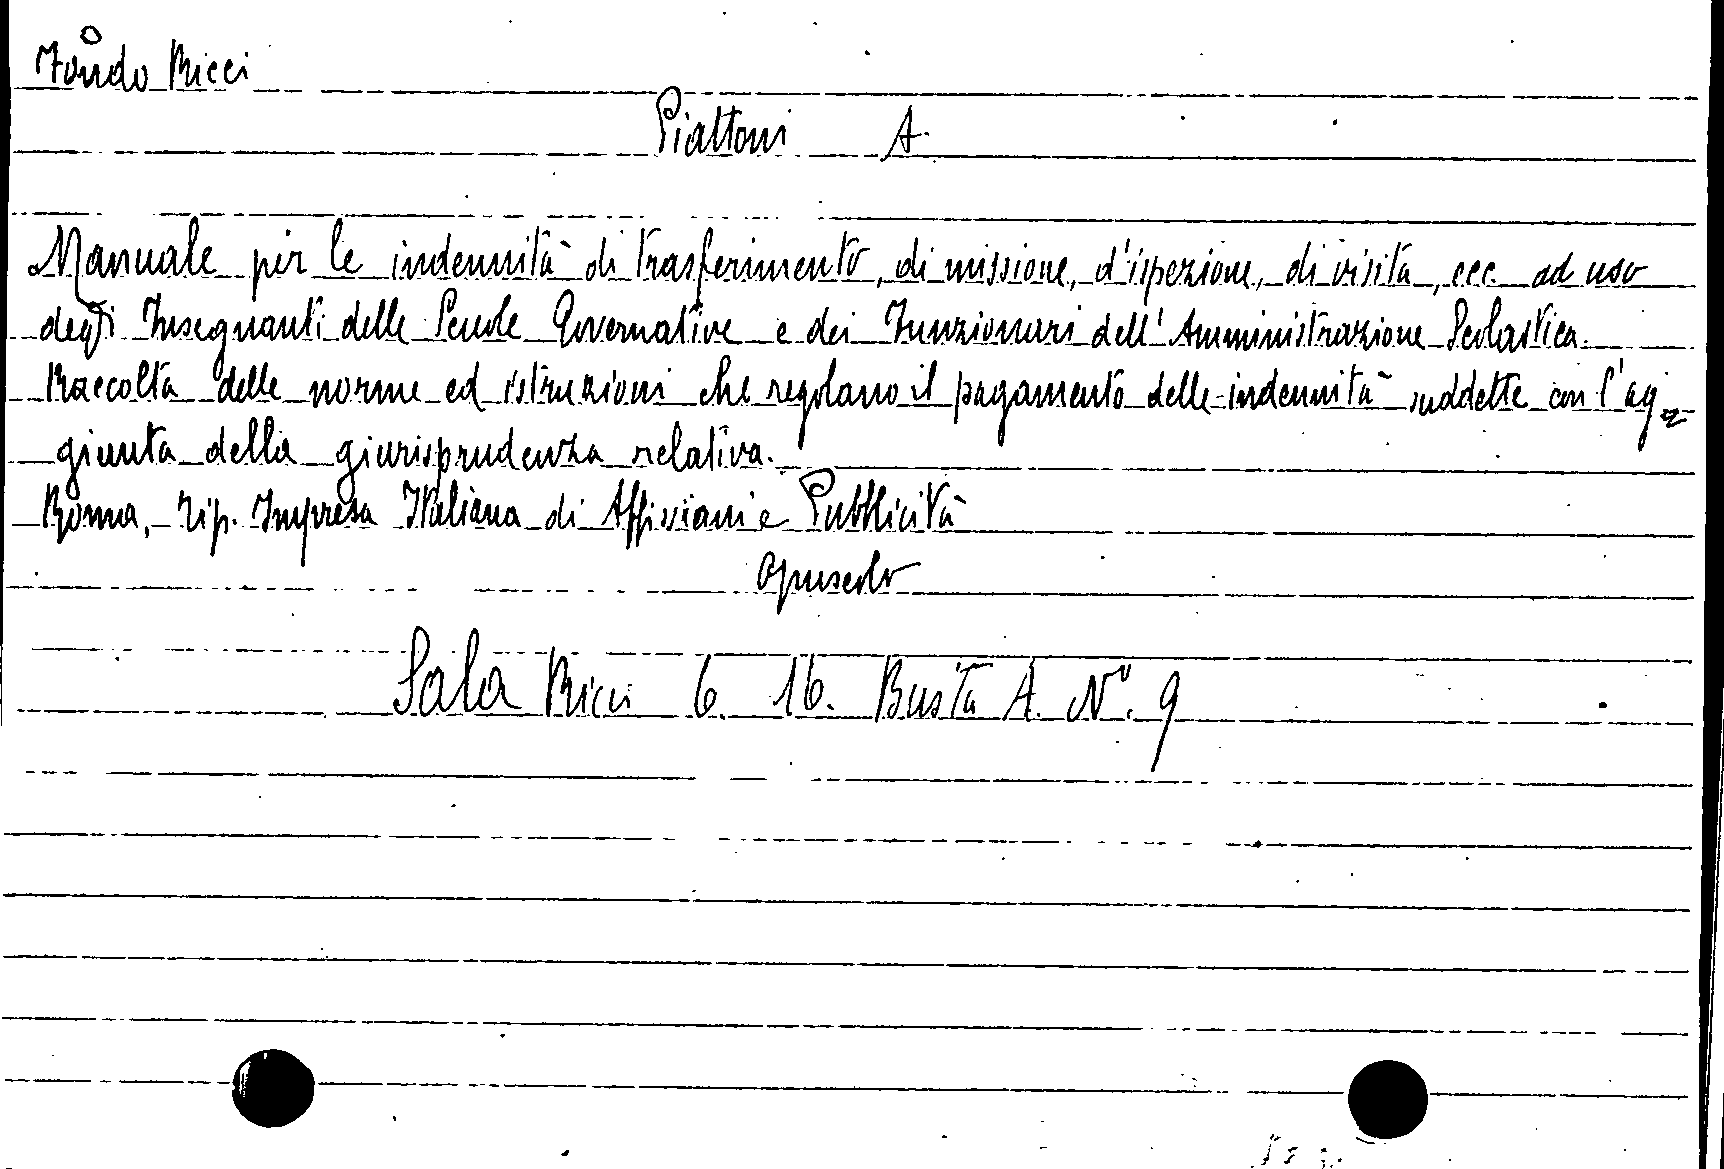 Fondo Ricci
Piattoni A.
Manuale per le indennità di trasferimento, di missione, d'ispezione, di visita, ecc. ad uso
degli Insegnanti delle Scuole Governative e dei Funzionari dell'Amministrazione Scolastica.
Raccolta delle norme ed istruzioni che regolano il pagamento delle indennità suddette con l'ag=
giunta della giurisprudenza relativa.
Roma, Tip. Impresa Italiana di Affissioni e Pubblicità
Opuscolo
Sala Ricci 6. 16. Busta A. N°. 9